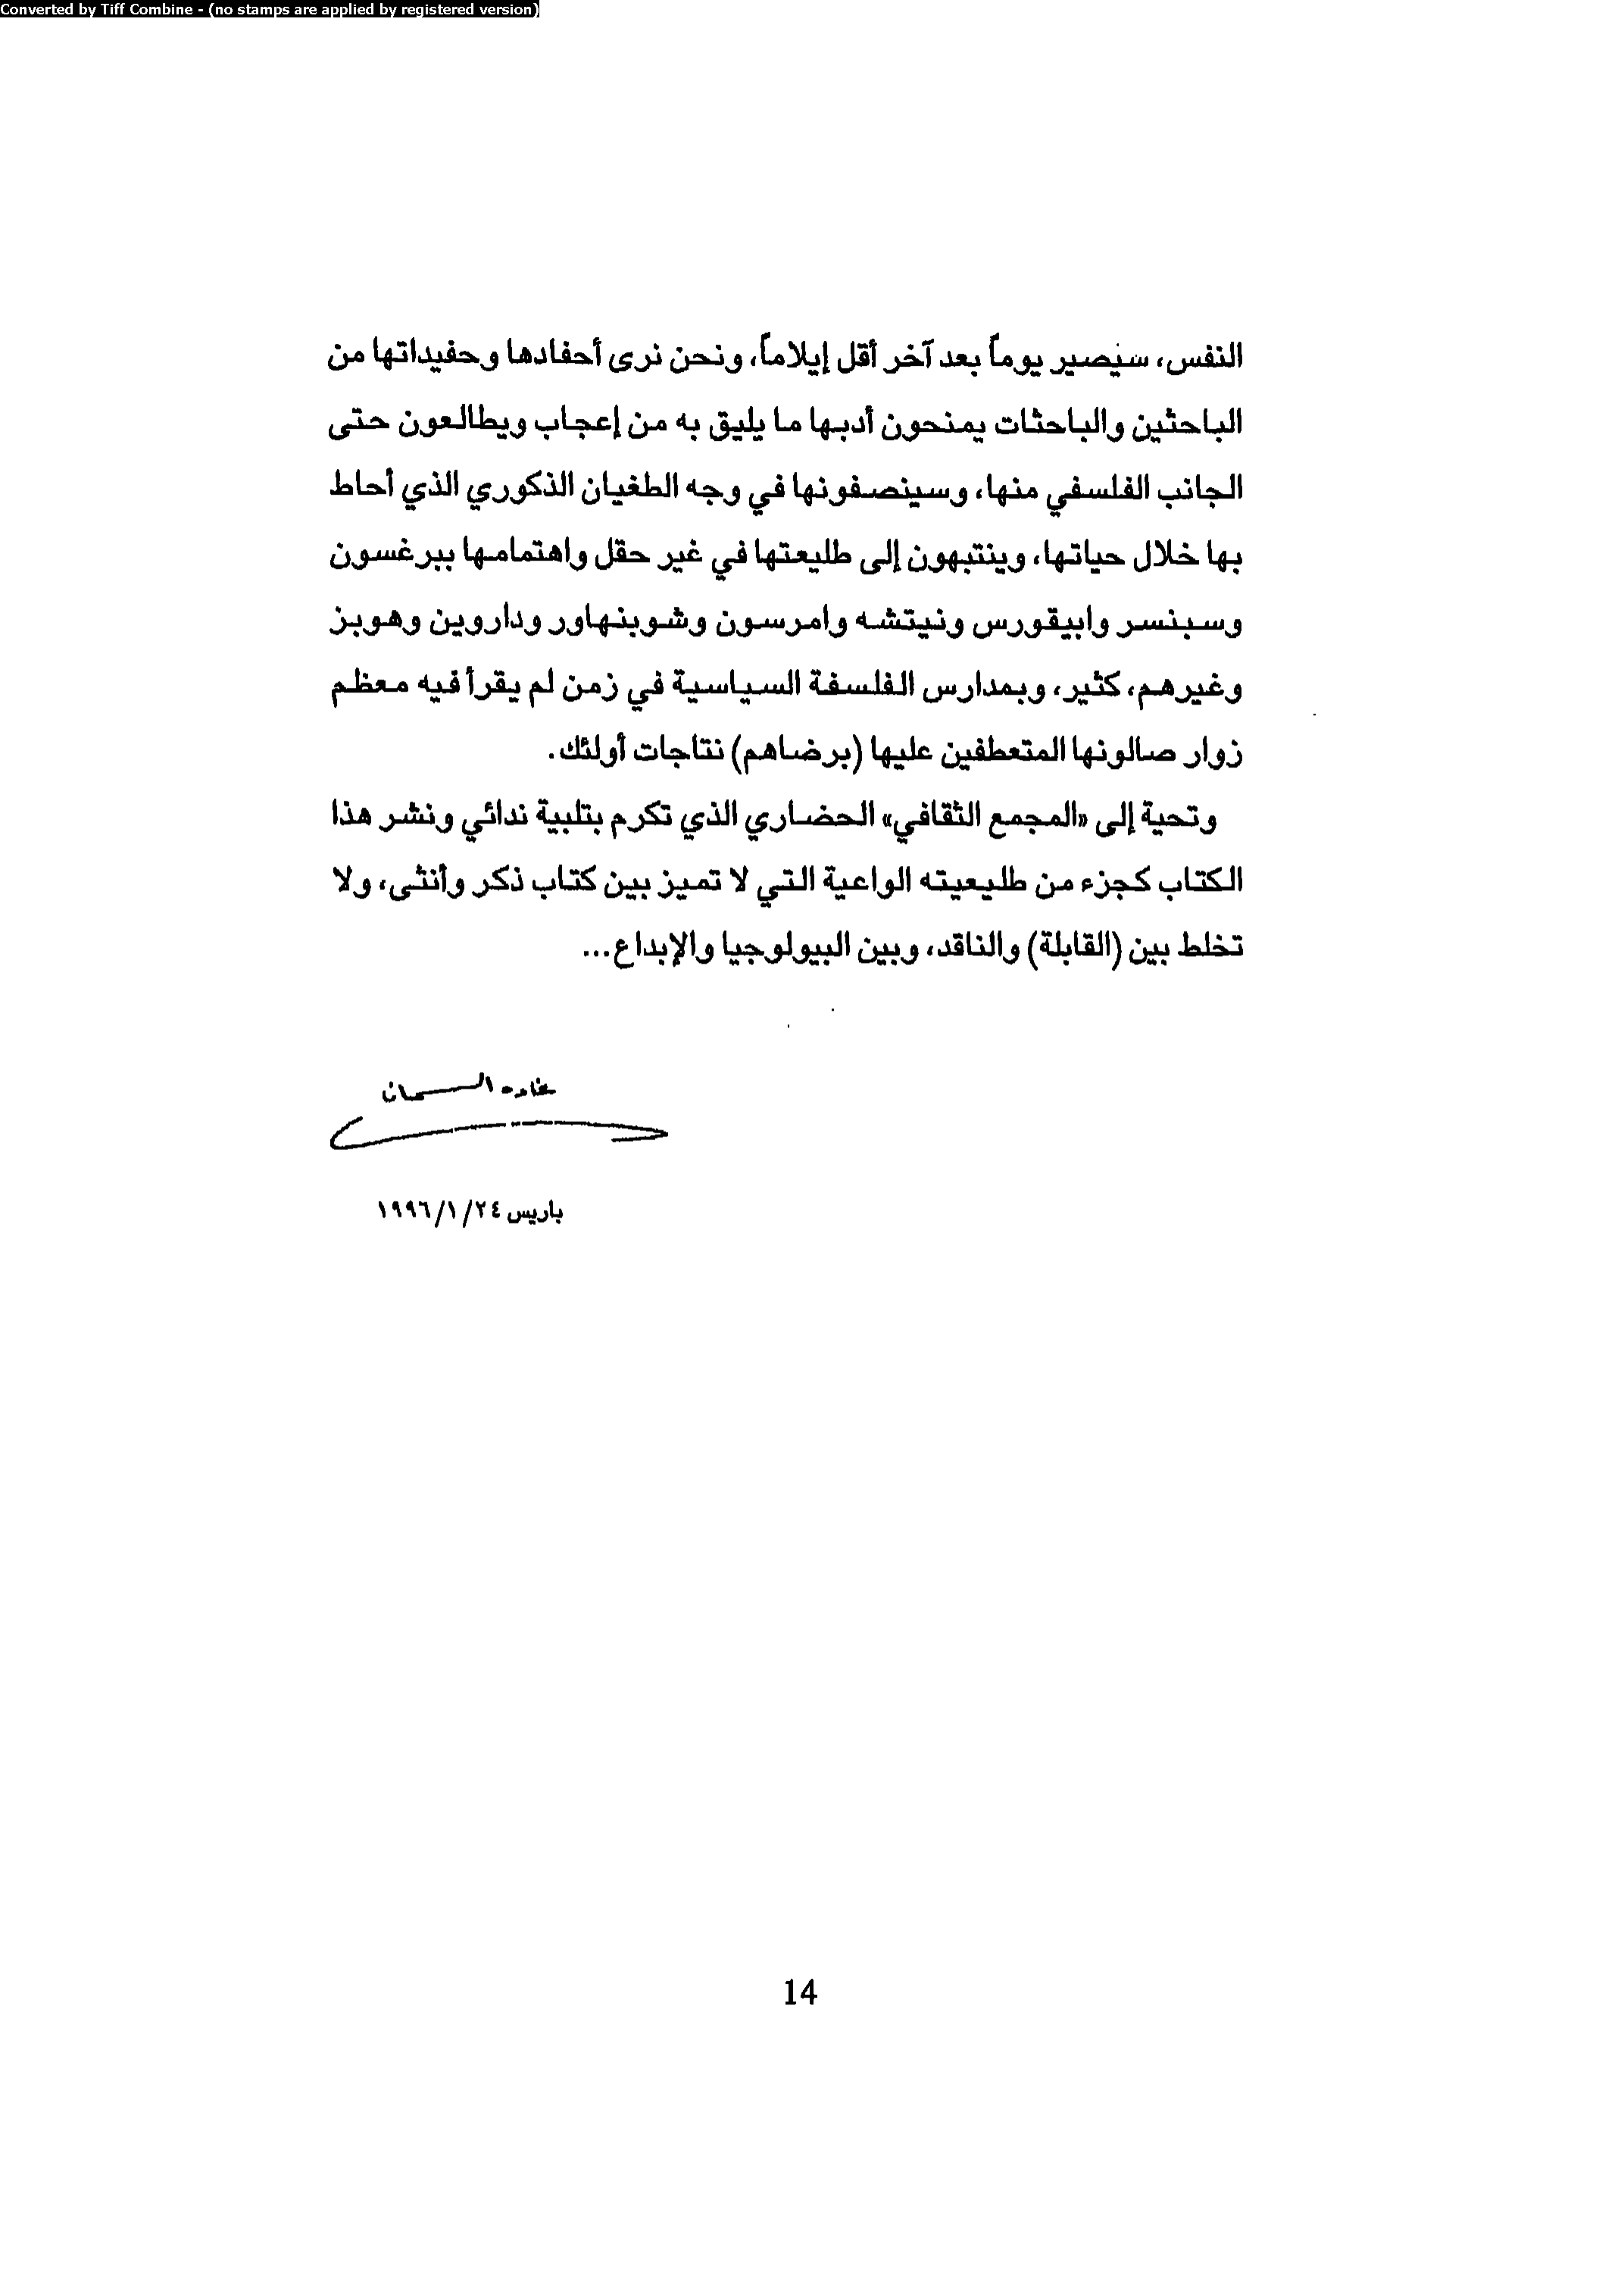 Converted by Tiff Combine - (no stamps are applied by registered version)
النفس، سيصير يوماً بعد آخر أقل إيلاماً، ونحن نرى أحفادها وحفيداتها من
الباحثين والباحثات يمنحون أدبها ما يليق به من إعجاب ويطالعون حتى
الجانب الفلسفي منها، وسينصفونها في وجه الطغيان الذكوري الذي أحاط
بها خلال حياتها، وينتبهون إلى طليعتها في غير حقل واهتمامها ببرغسون
وسبنسر وابيقورس ونيتشه وامرسون وشوبنهاور وداروين وهوبز
وغيرهم، كثير، وبمدارس الفلسفة السياسية في زمن لم يقرأ فيه معظم
زوار صالونها المتعطفين عليها (برضاهم) نتاجات أولئك.
وتحية إلى «المجمع الثقافي» الحضاري الذي تكرم بتلبية ندائي ونشر هذا
الكتاب كجزء من طليعيته الواعية التي لا تميز بين كتاب ذكر وأنثى، ولا
تخلط بين (القابلة) والناقد، وبين البيولوجيا والإبداع...
غادة السمان
باريس ٢٤/١/١٩٩٦
14